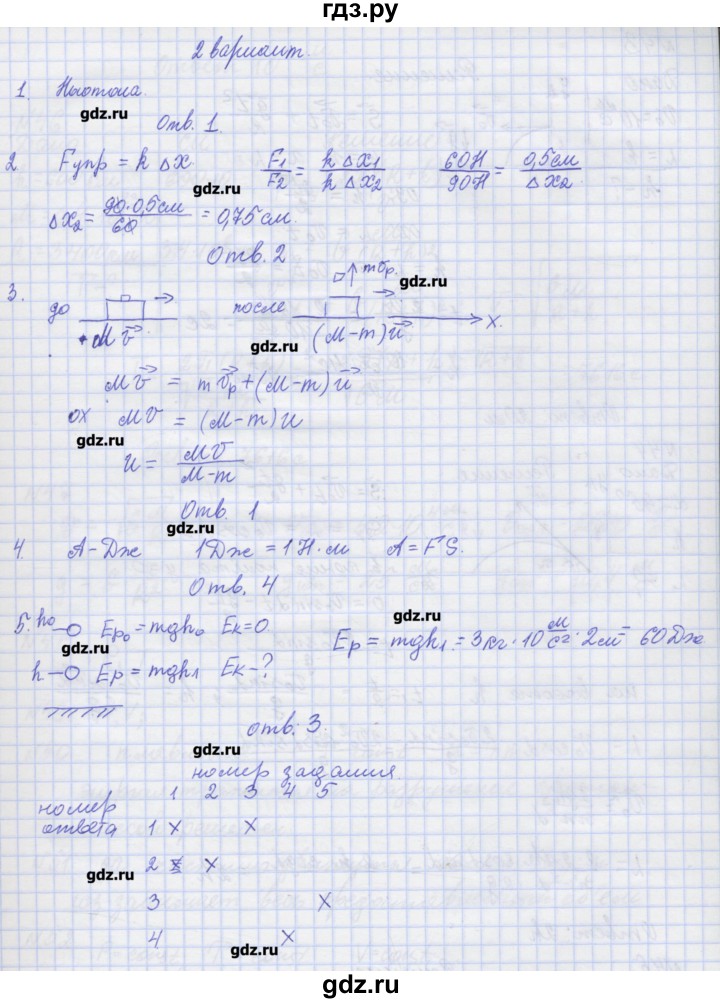 гдз.ру
2 вариант.
1. Ньютона.
gdz.ru
Отв. 1.
2 Fупр = k Δx F1/F2 = k Δx1/k Δx2 60Н/90Н = 0,5см/Δx2
gdz.ru
Δx2 = 90·0,5см/60 = 0,75см.
Отв. 2
gdz.ru
3. до после mv̄р. X.
Mv̄ (M-m)ū
gdz.ru
Mv̄ = mv̄р + (M-m)ū
ох Mv = (M-m)u
gdz.ru
u = Mv/M-m
Отв 1
gdz.ru
4. A - Дж 1Дж = 1Н·м A = FS.
Отв. 4
gdz.ru
5. h0 Ep0 = mgh0 Eк=0 Ep = mgh1 = 3кг·10 м/с²·2м = 60Дж
gdz.ru
h Ep = mgh1 Eк-?
отв. 3.
gdz.ru
номер задания
1 2 3 4 5
номер
ответа 1 x x
2 x x
gdz.ru
3 x
4 x
gdz.ru
gdz.ru